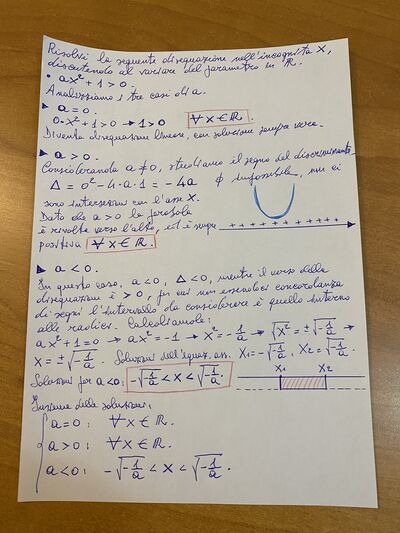 Risolvi la seguente disequazione nell'incognita X,
discutendo al variare del parametro in ℝ.
• ax²+1>0.
Analizziamo i tre casi di a.
▶ a=0.
0·x²+1>0 → 1>0 ∀x∈ℝ.
Diventa disequazione lineare, con soluzione sempre vera.
▶ a>0.
Considerando a≠0, studiamo il segno del discriminante
Δ = 0²-4·a·1 = -4a ∅ impossibile, non ci
sono intersezioni con l'asse X.
Dato che a>0 la parabola
è rivolta verso l'alto, ed è sempre
positiva ∀x∈ℝ.
+ + + + + + + + + + + +
▶ a<0.
In questo caso, a<0, Δ<0, mentre il verso della
disequazione è >0, per cui non essendoci concordanza
di segni l'intervallo da considerare è quello interno
alle radici. Calcoliamole:
ax²+1=0 → ax²=-1 → x²=-1/a → √x² = ±√-1/a →
X = ±√-1/a. Soluzioni dell'equaz. ass. X₁=-√-1/a, X₂=√-1/a.
Soluzioni per a<0: -√-1/a < x < √-1/a.
X₁ X₂
Insieme delle soluzioni:
a=0: ∀x∈ℝ.
a>0: ∀x∈ℝ.
a<0: -√-1/a < x < √-1/a.